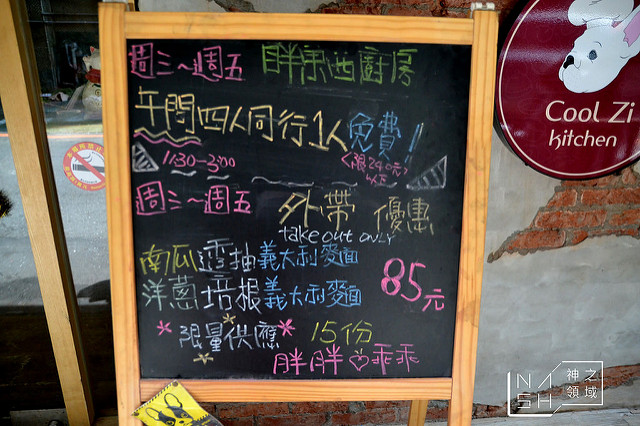 週三~週五 胖東西廚房
午間四人同行1人免費!!
11:30-3:00 <限240元以下
週三~週五 外帶優惠
take out only
南瓜透抽義大利麵
洋蔥培根義大利麵 85元
限量供應 15份
胖胖 乖乖
Cool Zi
Kitchen
NASH 神之領域